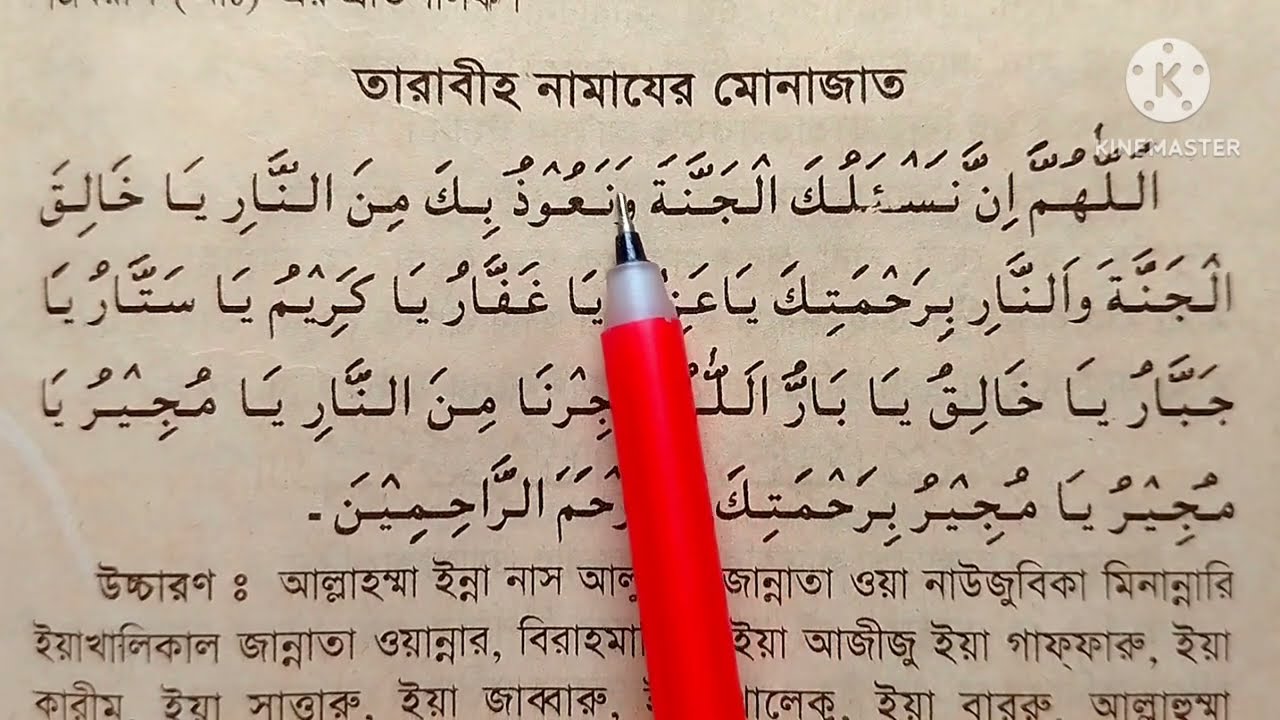 তারাবীহ নামাযের মোনাজাত
K
KINEMASTER
اَللّٰهُمَّ اِنَّ نَسْئَلُكَ الْجَنَّةَ وَنَعُوْذُ بِكَ مِنَ النَّارِ يَا خَالِقَ
الْجَنَّةَ وَالنَّارِ بِرَحْمَتِكَ يَا يَا غَفَّارُ يَا كَرِيْمُ يَا سَتَّارُ يَا
جَبَّارُ يَا خَالِقُ يَا بَارُّ مِنَ النَّارِ يَا مُجِيْرُ يَا
مُجِيْرُ يَا مُجِيْرُ بِرَحْمَتِكَ الرَّاحِمِيْنَ۔
উচ্চারণ ঃ আল্লাহম্মা ইন্না নাস জান্নাতা ওয়া নাউজুবিকা মিনান্নারি
ইয়াখালিকাল জান্নাতা ওয়ান্নার, ইয়া আজীজু ইয়া গাফ্ফারু, ইয়া
কারীম, ইয়া সাত্তারু, ইয়া জাব্বারু, ইয়া বাররু, আল্লাহুম্মা